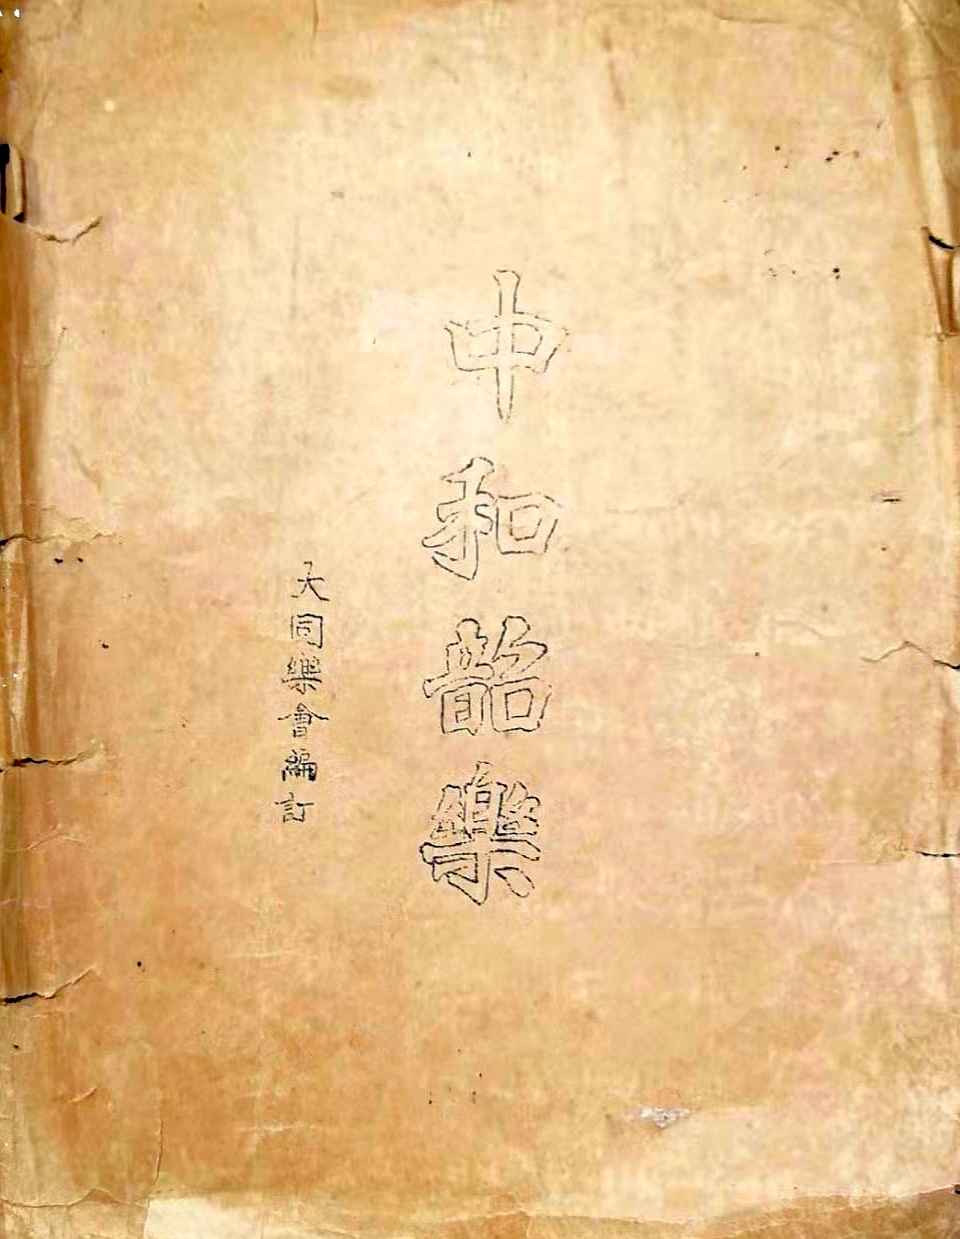 中和韶樂
大同樂會編訂